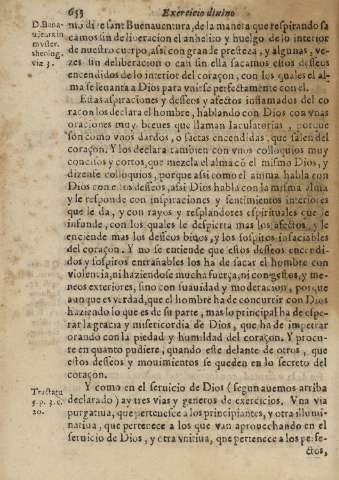 633 Exercicio diuino
D. Bona-
uleturx in
myster.
theolog.
viæ 3.
mo dize sant Buenauentura, de la manera que respirando sa
camos sin deliberacion el anhelito y huelgo de lo interior
de nuestro cuerpo, assi con gran presteza, y algunas, ve-
zes sin deliberacion o casi sin ella sacamos estos desseos
encendidos de lo interior del coraçon, con los quales el al-
ma se leuanta a Dios para vnirse perfectamente con el.
Estas aspiraciones y desseos y afectos inflamados del co
raçon los declara el hombre, hablando con Dios con vnas
oraciones muy breues que llaman jaculatorias, porque
son como vnos dardos, o saetas encendidas, que salen del
coraçon. Y los declara tambien con vnos colloquios muy
concisos y cortos, que mezcla el alma cõ el mismo Dios, y
dizense colloquios, porque assi como el anima habla con
Dios con estos desseos, assi Dios habla con la misma alma
y le responde con inspiraciones y sentimientos interiores
que le da, y con rayos y resplandores espirituales que le
infunde, con los quales le despierta mas los afectos, y le
enciende mas los desseos biuos, y los sospiros insaciables
del coraçon. Y no se entiende que estos desseos encendi-
dos y sospiros entrañables los ha de sacar el hombre con
violencia, ni haziendose mucha fuerça, ni con gestos, y me-
neos exteriores, sino con suauidad y moderacion, porque
aunque es verdad, que el hombre ha de concurrir con Dios
haziendo lo que es de su parte, mas lo principal ha de espe-
rar la gracia y misericordia de Dios, que ha de impetrar
orando con la piedad y humildad del coraçon. Y procu-
re en quanto pudiere, quando este delante de otros, que
estos desseos y mouimientos se queden en lo secreto del
coraçon.
Tractatu
5. p. 3. c.
20.
Y como en el seruicio de Dios (segun auemos arriba
declarado) ay tres vias y generos de exercicios. Vna via
purgatiua, que pertenesce a los principiantes, y otra illumi-
natiua, que pertenece a los que van aprouechando en el
seruicio de Dios, y otra vnitiua, que pertenece a los perfe-
ctos,